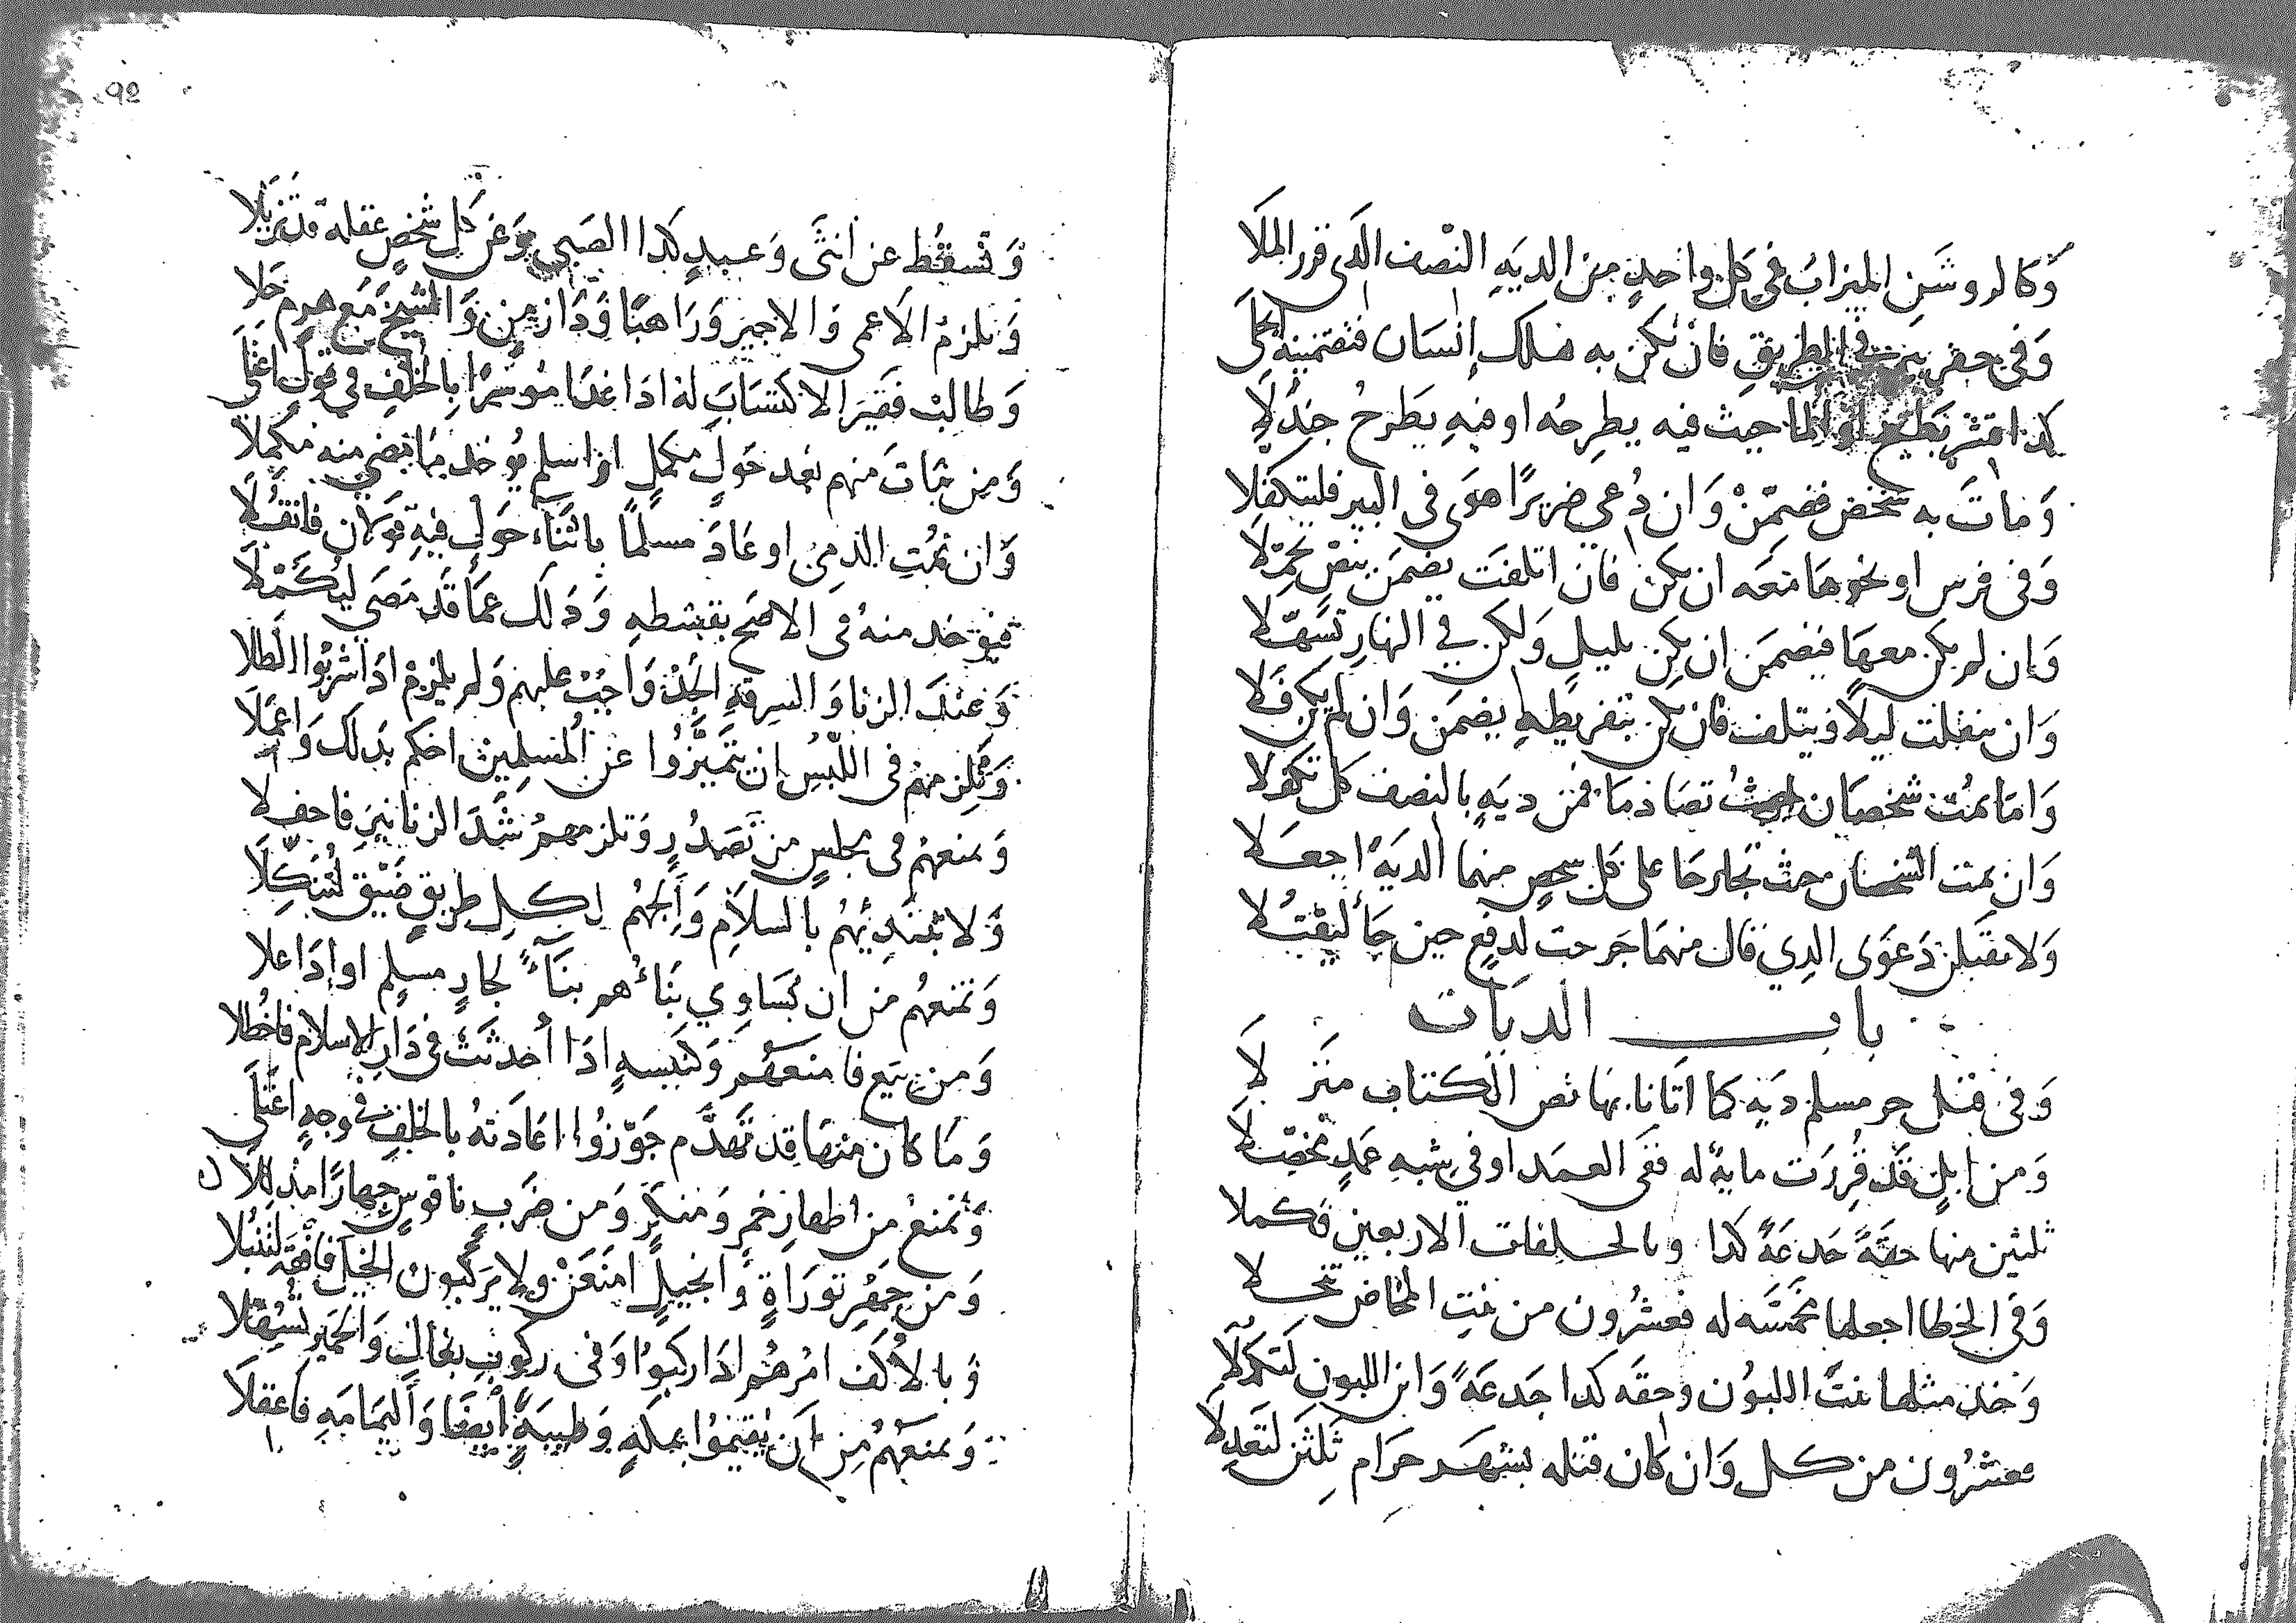 وَكالروشَنِ الميزابُ في كلِّ واحدٍ مِن الديَهِ النّصف الّذي قررَ الملَا
وَفي حفر بير في الطريقِ فان يكن به هلك إنسان فتضمينه انجلَى
كذا قشر بطيخ او الما حيث فيه يطرحُه او فيهِ يطرَحُ جندلَا
وَماتَ به شخص فضمّنْ وَان دُعي ضريرًا هوَى في البير فليتكفلا
وَفي فرس او نحوها معَه ان يكن فان اتلفت يضمَن بنقل تحمّلَا
وَان لم يكن معهَا فيضمَن إن يكن بليلٍ وَلكن في النهارِ تسَهّلَا
وَان ينفلت ليلًا فيتلف فان يكن بتفريطهِ يضمَن وَان لم يكن فلا
وَامّا يمُت شخصان حيثُ تصَادمَا فمن ديَهٍ بالنصف كل تكفلا
وَان يمت الشخصان حيث تجارحَا على كل شخص منهما الديَهً اجعَلا
وَلا تقبلن دَعوَى الذي قال منهمَا جَرحت لدفعٍ حين جَا ليقتُلا
باب الديات
وَفي قتل حر مسلم ديَه كما اتانا بها نص الكتاب منَزلَا
وَمن ابلٍ قد قُرِرَت مايهً له ففي العمَد او في شبهِ عَمدٍ تحصّلَا
ثلثين منها حقّهً جَدعَهً كذا وبالخلفات الاربعين فكملا
وَفي الخطا اجعلها مخمّسَه له فعشرُون من بنتِ المخاض تنخلا
وَخذ مثلها بنتَ اللبوُن وحقه كذا جَدعَهً وَابن اللبون لتكملَا
فعشرُون من كل وَان كان قتله بشهَر حَرَام ثلثن لتَعدِلَا
92
وَتسقُط عن أنثَى وَعبدٍ كذا الصَبي وَعَن كل شخصٍ عقله قد تزيّلَا
وَيلزمُ الاعمى وَالاجير وَرَاهبًا وَذَا زمنٍ وَالشيخ مَع هرم خَلا
وَطالبْ فقيرَا لا كتسَابَ له اذا غدَا موُسرًا بِالخلفِ في قولٍ اعْتلَى
وَمن مَاتَ منهم بَعد حَولٍ مكملٍ او اسلم يوُخذ مَا مضى منه مكمَلا
وَان يمُتِ الذمىُ او عَادَ مسلمًا باثناء حَولٍ فيهِ قولان فانقُلَا
فيوخد منهُ في الاصَح بقسْطهِ وَذلك عمّا قد مضَى ليُكمّلَا
وَعندَ الزنا وَالسرقهِ الحدُّ وَاجبٌ عليهم وَلم يلزمْ اذَا شربُوا الطلا
وَتُلزمهم في اللبْسِ ان يتَميَّزُوا عن المُسلمِينَ احكم بذلك وَاعمَلَا
وَتمنعهُم في مجلسٍ من تَصَدُرٍ وَتلزمهمُ شَدَّ الزنانيرَ فاحفلَا
وَلا تبتديهُم بالسلاَمِ وَالجهُم لكلِ طريقٍ ضيّق لتُنكِّلَا
وَتمنعهُم من ان يُسَاوِي بنَاءُهم بنَاءً لجارٍ مسلمٍ او اذَا علا
وَمن بِيَع فامنعهُم وَكنيسهٍ اذَا أُحدثَتْ في دَارِ الاسلام فاخطلا
وَمَا كان منهَا قد تهدَّم جَوّزوُا اعَادَتهُ بالخلفِ في وجهٍ اعتلَى
وَتمنعْ من اظهارِ خمرٍ وَمنكرٍ وَمن ضَربِ ناقوُسٍ جِهارًا مذلِلَا
وَمن جَهْرِ توْرَاةٍ وَانجيلٍ امنَعَنْ ولا يركَبُون الخيل فافقَه لتنبُلَا
وَبالاُكف امُرهُم اذَا ركبوُا وَفي ركُوبِ بغالٍ وَالحمير تسَهّلَا
وَتمنعهُم مِن ان يُقيموُا بمكهٍ وَطيبهً ايضًا وَاليمَامَهِ فاعقلَا